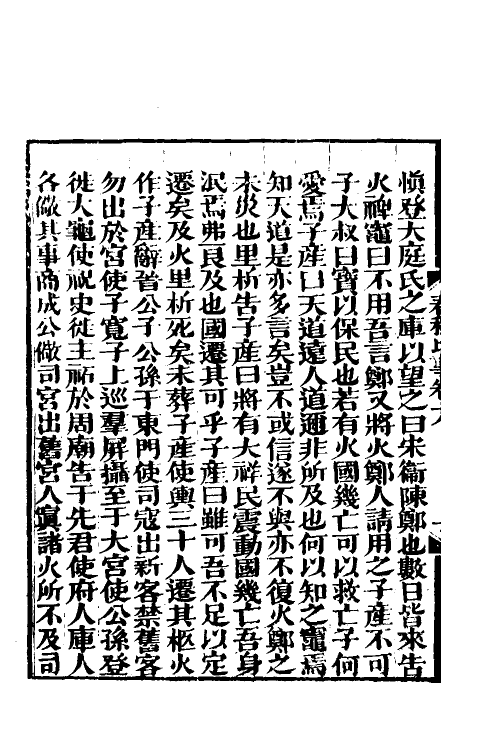 愼登大庭氏之庫以望之曰宋衞陳鄭也數日皆來告
火禆竈曰不用吾言鄭又將火鄭人請用之子產不可
子大叔曰寶以保民也若有火國幾亡可以救亡子何
愛焉子產曰天道遠人道邇非所及也何以知之竈焉
知天道是亦多言矣豈不或信遂不與亦不復火鄭之
未災也里析告子產曰將有大祥民震動國幾亡吾身
泯焉弗良及也國遷其可乎子產曰雖可吾不足以定
遷矣及火里析死矣未葬子產使輿三十人遷其柩火
作子產辭晉公子公孫于東門使司寇出新客禁舊客
勿出於宮使子寬子上巡羣屏攝至于大宮使公孫登
徙大龜使祝史徙主祏於周廟告于先君使府人庫人
各儆其事商成公儆司宮出舊宮人寘諸火所不及司